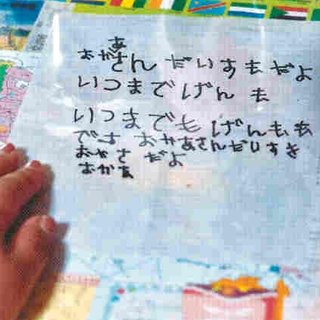 おかあさん だいすきだよ
いつまでげんき
いつまでもげんきき
でさ おかあさんだいすき
おかさ だよ
おかあ